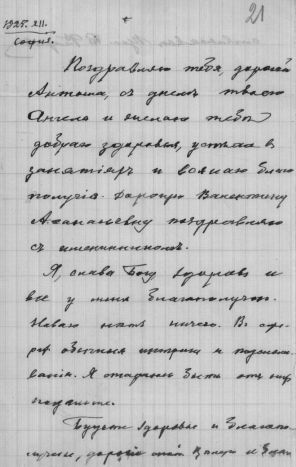 21
1925. XII.
София.
Поздравляю тебя, дорогой
Антоша, съ днемъ твоего
Ангела и желаю тебѣ
добраго здоровья, успѣха в
занятіях и всякаго благо
получія. Дорогую Валентину
Афанасьевну поздравляю
съ именинникомъ.
Я, слава Богу здоровъ и
все у меня благополучно.
Новаго нѣтъ ничего. В
обычныя интриги и
Я стараюсь быть отъ них
подальше.
Будьте здоровы и благопо
лучны, дорогіе мои